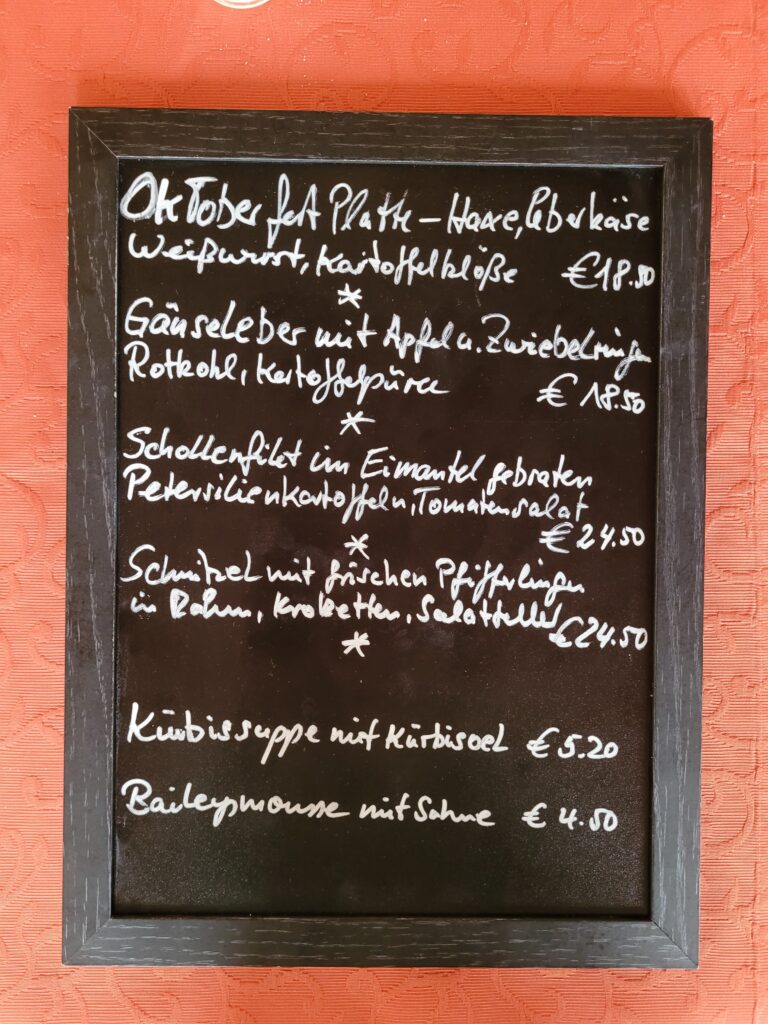 Oktoberfest Platte – Haxe, Leberkäse
Weißwurst, Kartoffelklöße € 18.50
*
Gänseleber mit Apfel u. Zwiebelringen
Rotkohl, Kartoffelpüree € 18.50
*
Schollenfilet im Eimantel gebraten
Petersilienkartoffeln, Tomatensalat
€ 24.50
*
Schnitzel mit frischen Pfifferlingen
in Rahm, Kroketten, Salatteller € 24.50
*
Kürbissuppe mit Kürbisoel € 5.20
Baileysmousse mit Sahne € 4.50